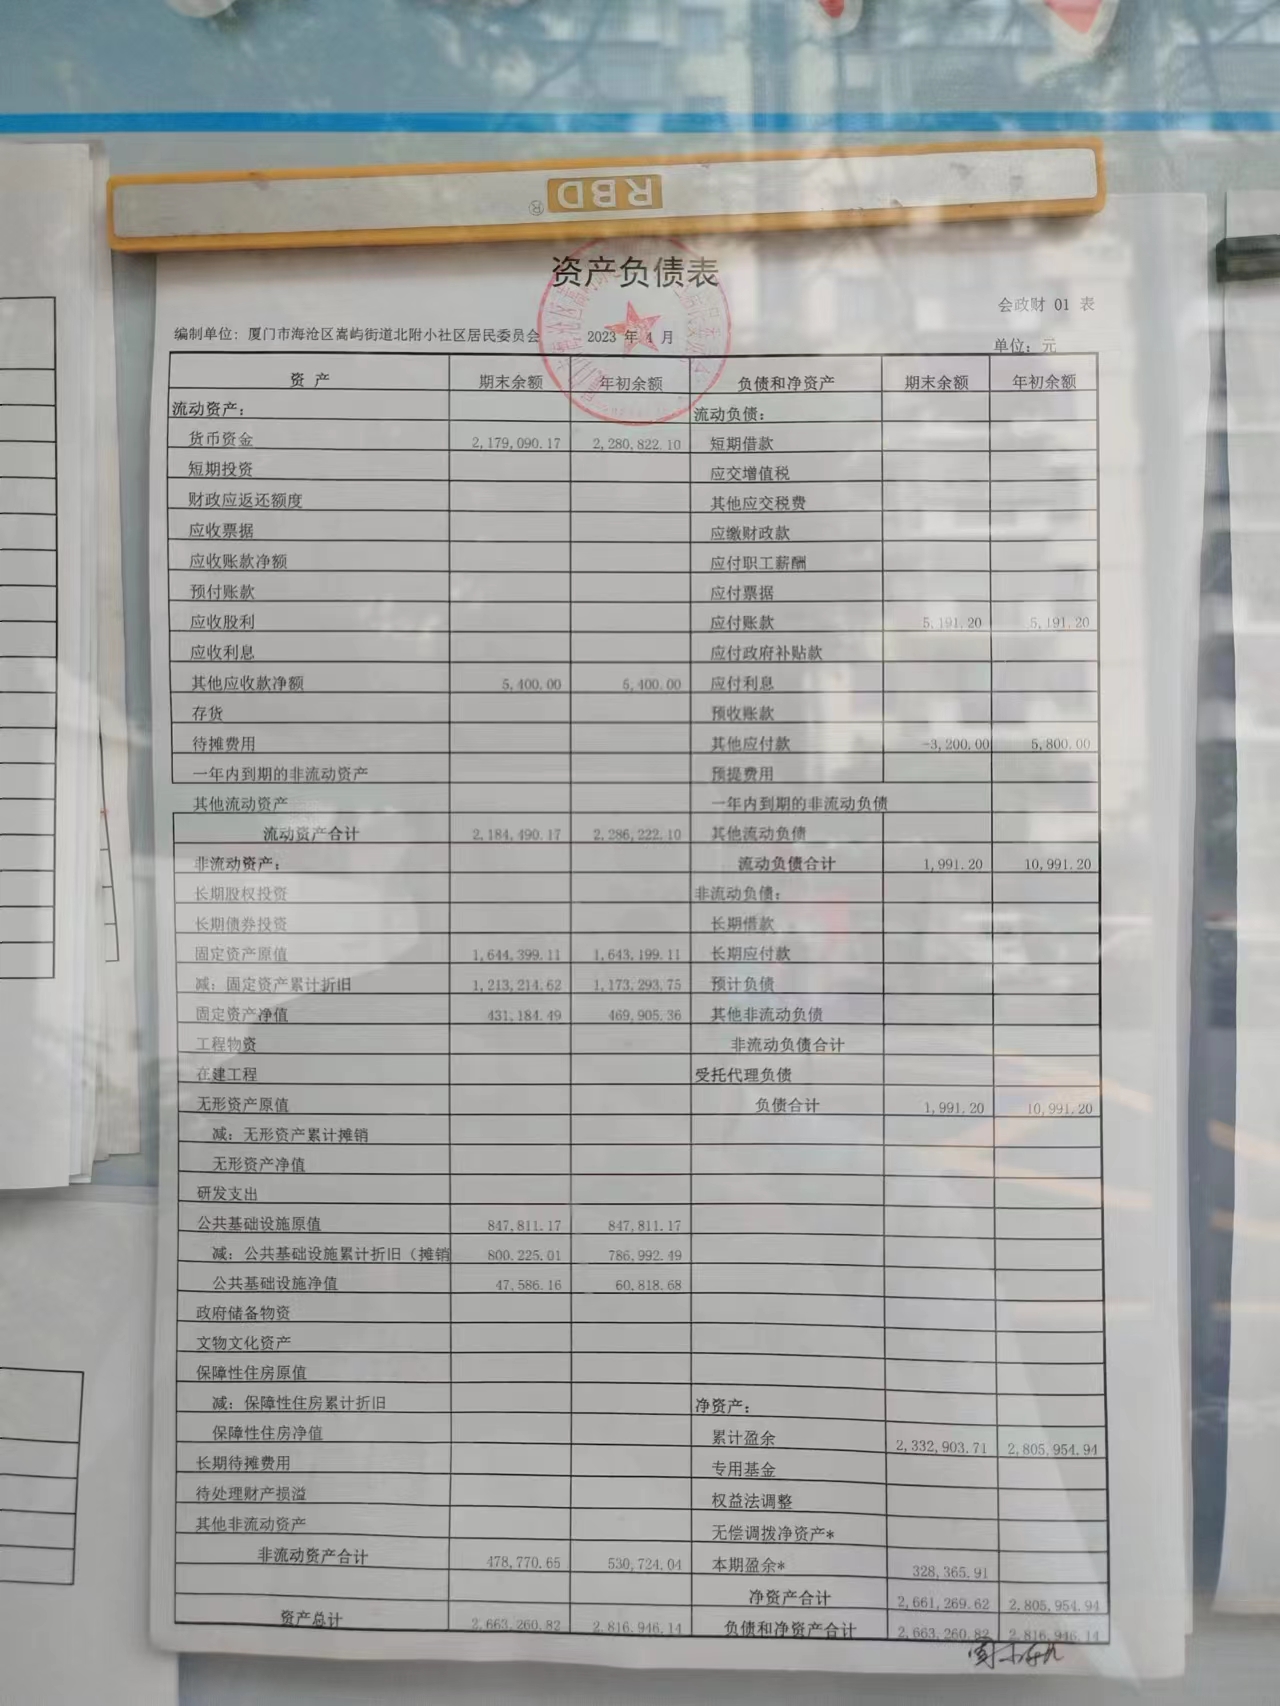 RBD®
资产负债表
会政财 01 表
编制单位: 厦门市海沧区嵩屿街道北附小社区居民委员会 2023 年 4 月 单位: 元
资 产 期末余额 年初余额 负债和净资产 期末余额 年初余额
流动资产: 流动负债:
货币资金 2,179,090.17 2,280,822.10 短期借款
短期投资 应交增值税
财政应返还额度 其他应交税费
应收票据 应缴财政款
应收账款净额 应付职工薪酬
预付账款 应付票据
应收股利 应付账款 5,191.20 5,191.20
应收利息 应付政府补贴款
其他应收款净额 5,400.00 5,400.00 应付利息
存货 预收账款
待摊费用 其他应付款 -3,200.00 5,800.00
一年内到期的非流动资产 预提费用
其他流动资产 一年内到期的非流动负债
流动资产合计 2,184,490.17 2,286,222.10 其他流动负债
非流动资产: 流动负债合计 1,991.20 10,991.20
长期股权投资 非流动负债:
长期债券投资 长期借款
固定资产原值 1,644,399.11 1,643,199.11 长期应付款
减: 固定资产累计折旧 1,213,214.62 1,173,293.75 预计负债
固定资产净值 431,184.49 469,905.36 其他非流动负债
工程物资 非流动负债合计
在建工程 受托代理负债
无形资产原值 负债合计 1,991.20 10,991.20
减: 无形资产累计摊销
无形资产净值
研发支出
公共基础设施原值 847,811.17 847,811.17
减: 公共基础设施累计折旧（摊销 800,225.01 786,992.49
公共基础设施净值 47,586.16 60,818.68
政府储备物资
文物文化资产
保障性住房原值
减: 保障性住房累计折旧 净资产:
保障性住房净值 累计盈余 2,332,903.71 2,805,954.94
长期待摊费用 专用基金
待处理财产损溢 权益法调整
其他非流动资产 无偿调拨净资产*
非流动资产合计 478,770.65 530,724.04 本期盈余* 328,365.91
净资产合计 2,661,269.62 2,805,954.94
资产总计 2,663,260.82 2,816,946.14 负债和净资产合计 2,663,260.82 2,816,946.14